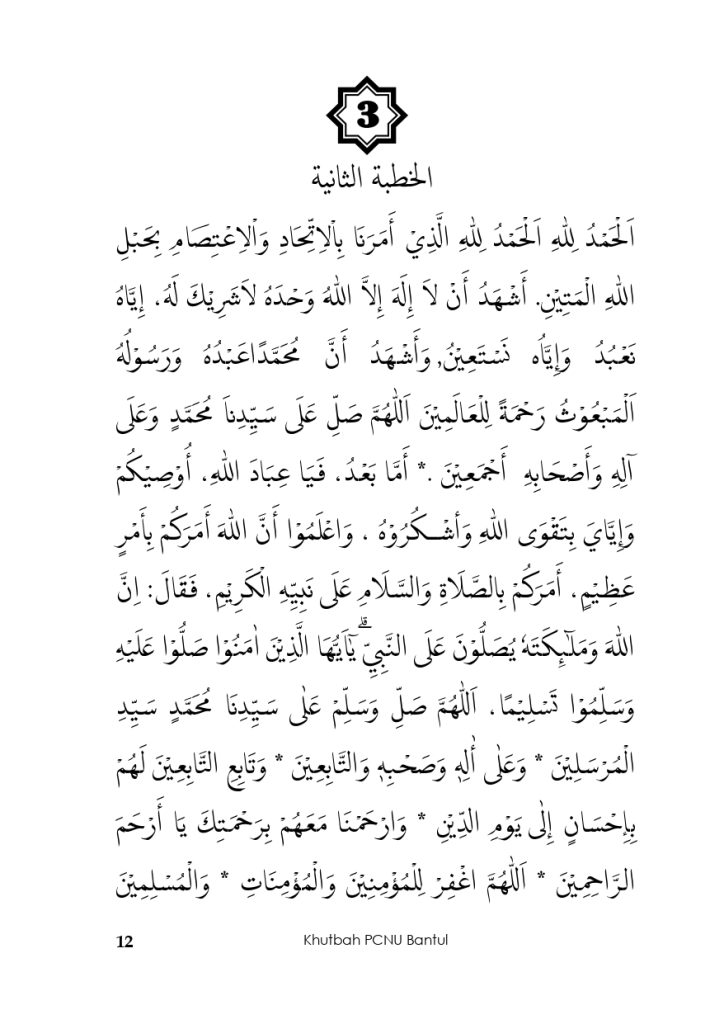 3
الخطبة الثانية
اَلْحَمْدُ لِلّٰهِ اَلْحَمْدُ لِلّٰهِ الَّذِيْ أَمَرَنَا بِاْلاِتِّحَادِ وَاْلاِعْتِصَامِ بِحَبْلِ
اللهِ الْمَتِيْنِ. أَشْهَدُ أَنْ لاَ إِلَهَ إِلاَّ اللهُ وَحْدَهُ لاَشَرِيْكَ لَهُ، إِيَّاهُ
نَعْبُدُ وَإِيَّاُه نَسْتَعِيْنُ, وَأَشْهَدُ أَنَّ مُحَمَّدًاعَبْدُهُ وَرَسُوْلُهُ
اَلْمَبْعُوْثُ رَحْمَةً لِلْعَالَمِيْنَ اَللّٰهُمَّ صَلِّ عَلَى سَيِّدِناَ مُحَمَّدٍ وَعَلَى
آلِهِ وَأَصْحَابِهِ أَجْمَعِيْنَ .* أَمَّا بَعْدُ، فَيَا عِبَادَ اللهِ، أُوْصِيْكُمْ
وَإِيَّايَ بِتَقْوَى اللهِ وَأشْــكُرُوْهُ ، وَاعْلَمُوْا أَنَّ اللهَ أَمَرَكُمْ بِأَمْرٍ
عَظِيْمٍ، أَمَرَكُمْ بِالصَّلَاةِ وَالسَّلَامِ عَلَى نَبِيِّهِ الْكَرِيْمِ، فَقَالَ: اِنَّ
اللهَ وَمَلٰٓىِٕكَتَهٗ يُصَلُّوْنَ عَلَى النَّبِيِّۗ يٰٓاَيُّهَا الَّذِيْنَ اٰمَنُوْا صَلُّوْا عَلَيْهِ
وَسَلِّمُوْا تَسْلِيْمًا، اَللّٰهُمَّ صَلِّ وَسَلِّمْ عَلٰى سَيِّدِنَا مُحَمَّدٍ سَيِّدِ
الْمُرْسَلِيْنَ * وَعَلٰى أٰلِهٖ وَصَحْبِهٖ وَالتَّابِعِيْنَ * وَتَابِعِ التَّابِعِيْنَ لَهُمْ
بِاِحْسَانٍ إِلٰى يَوْمِ الدِّيْنِ * وَارْحَمْنَا مَعَهُمْ بِرَحْمَتِكَ يَا أَرْحَمَ
الرَّاحِمِيْنَ * اَللّٰهُمَّ اغْفِرْ لِلْمُؤْمِنِيْنَ وَالْمُؤْمِنَاتِ * وَالْمُسْلِمِيْنَ
12 Khutbah PCNU Bantul